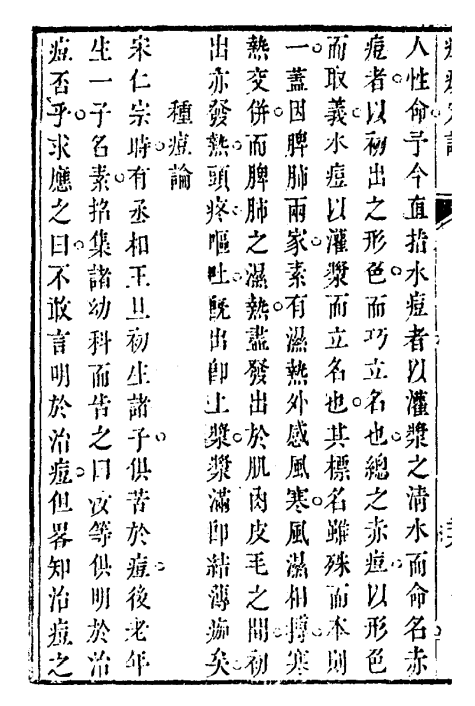 人性命予今直指水痘者以灌漿之清水而命名赤
痘者以初出之形色而巧立名也總之赤痘以形色
而取義水痘以灌漿而立名也其標名雖殊而本則
一蓋因脾肺兩家素有濕熱外感風寒風濕相搏寒
熱交併而脾肺之濕熱盡發出於肌肉皮毛之間初
出亦發熱頭疼嘔吐旣出卽上漿漿滿卽結薄痂矣
種痘論
宋仁宗時有丞相王旦初生諸子俱苦於痘後老年
生一子名素招集諸幼科而告之曰汝等俱明於治
痘否乎求應之曰不敢言明於治痘但畧知治痘之